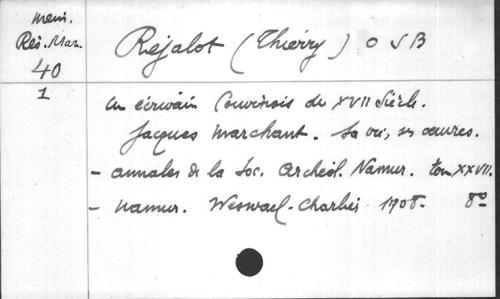 Mém.
Rés. Mar.
40
1
Réjalot (Thierry) O S B
Un écrivain Couvinois du XVII Siècle.
Jacques Marchant. Sa vie, ses œuvres.
- annales de la Soc. Archéol. Namur. tom XXVII.
- Namur. Wesmael-Charlier 1908. 8º